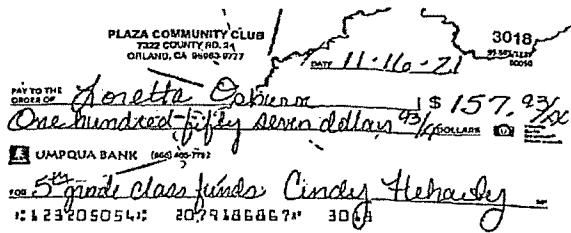 PLAZA COMMUNITY CLUB
7322 COUNTY RD. 24
ORLAND, CA 95963-9777
3018
DATE 11-16-21
PAY TO THE ORDER OF Loretta Osburn $ 157. 93/xx
One hundred-fifty seven dollars 93/ DOLLARS
UMPQUA BANK (866) 486-7782
FOR 5th grade class funds Cindy
⑆123205054⑆ 2079186867⑈ 3018